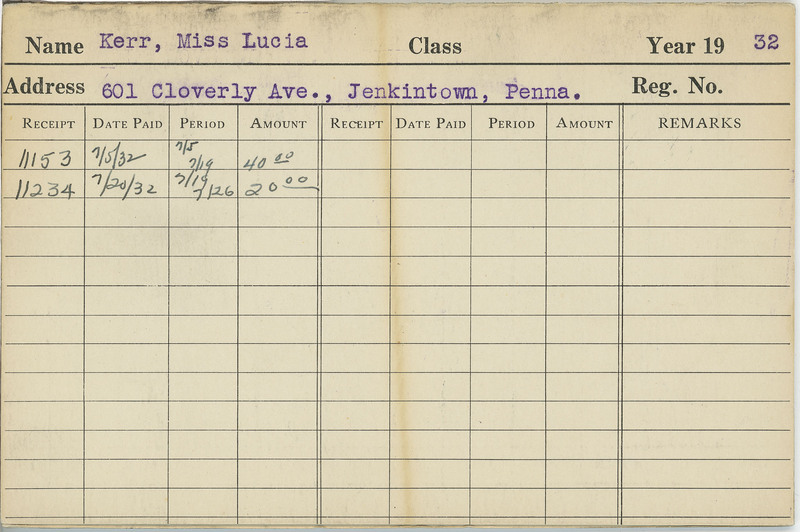 Name Kerr, Miss Lucia Class Year 19 32
Address 601 Cloverly Ave., Jenkintown, Penna. Reg. No.
RECEIPT DATE PAID PERIOD AMOUNT RECEIPT DATE PAID PERIOD AMOUNT REMARKS
11153 7/5/32 7/5 7/19 40 00
11234 7/20/32 7/19 7/26 20 00